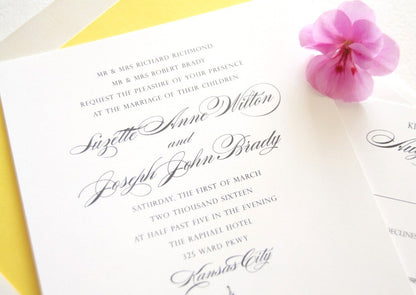 MR & MRS RICHARD RICHMOND
MR & MRS ROBERT BRADY
REQUEST THE PLEASURE OF YOUR PRESENCE
AT THE MARRIAGE OF THEIR CHILDREN
Suzette Anne Wilton
and
Joseph John Brady
SATURDAY, THE FIRST OF MARCH
TWO THOUSAND SIXTEEN
AT HALF PAST FIVE IN THE EVENING
THE RAPHAEL HOTEL
325 WARD PKWY
Kansas City